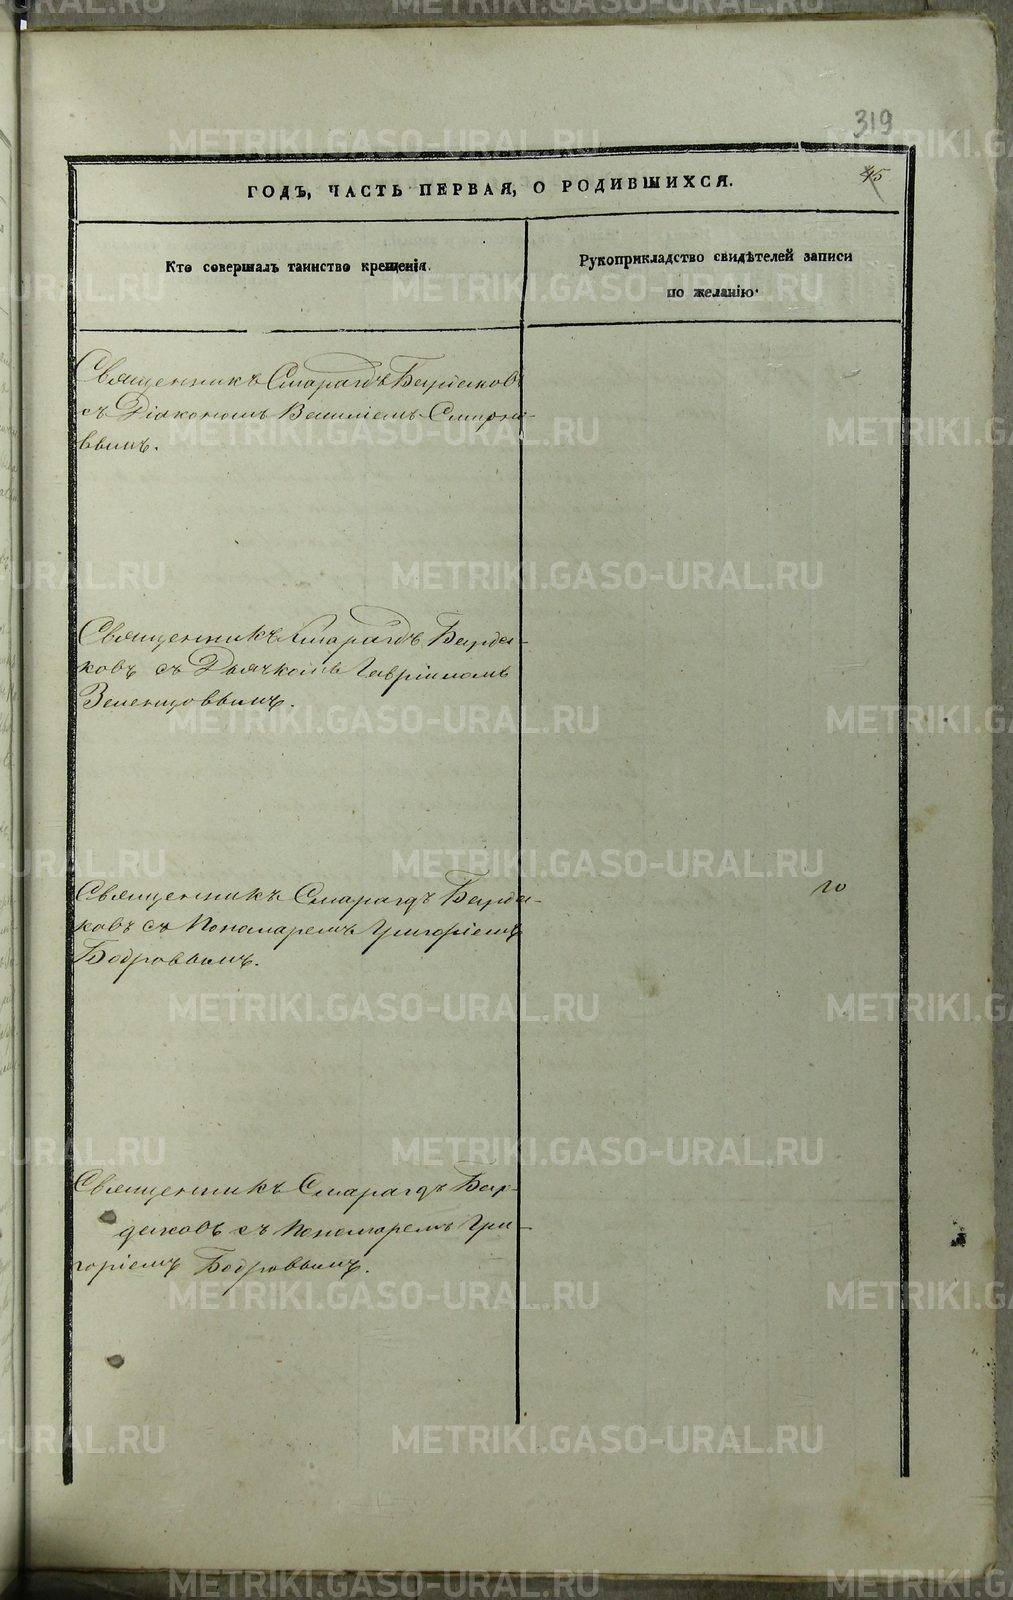 319
45
ГОДЪ, ЧАСТЬ ПЕРВАЯ, О РОДИВШИХСЯ.
Кто совершалъ таинство крещенія.
Рукоприкладство свидѣтелей записи
по желанію.
Священникъ Смарагдъ Бардаковъ
съ Діакономъ Василіемъ Смирно-
вымъ.
Священникъ Смарагдъ Барда-
ковъ съ Дьячкомъ Гавріиломъ
Зеленцовымъ.
Священникъ Смарагдъ Барда-
ковъ съ Пономаремъ Григоріемъ
Бобровымъ.
Священникъ Смарагдъ Бар-
даковъ съ Пономаремъ Гри-
горіемъ Бобровымъ.
METRIKI.GASO-URAL.RU